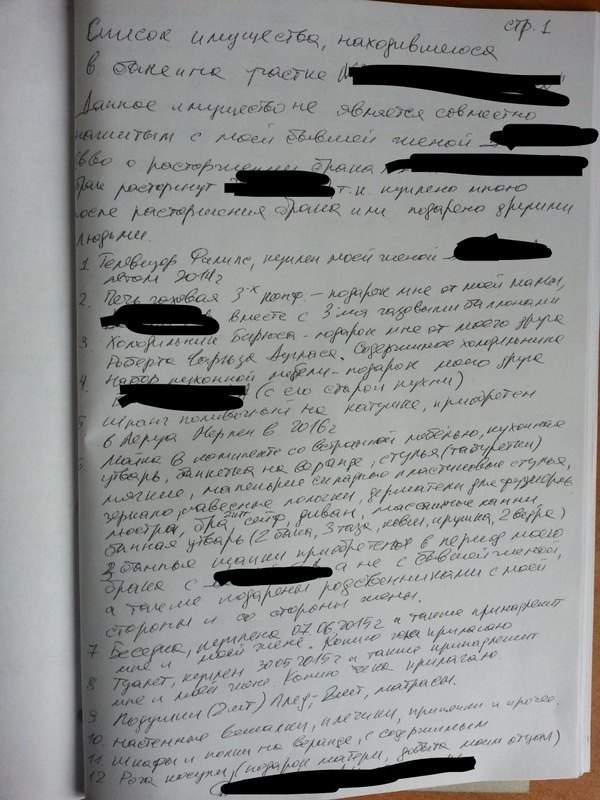 стр. 1
Список имущества, находившегося
в бане и на участке
Данное имущество не является совместно
нажитым с моей бывшей женой
св-во о расторжении брака
Брак расторгнут т.к. куплено мною
после расторжения брака или подарено другими
людьми.
1. Телевизор Филипс, куплен моей женой
летом 2014г
2. Печь газовая 3-х конф. - подарок мне от моей мамы,
вместе с 3-мя газовыми баллонами
3. Холодильник Бирюса - подарок мне от моего друга
Роберта Чарльза Дугласа. Содержимое холодильника
4. Набор кухонной мебели - подарок моего друга
(с его старой кухни)
5. Шланг поливочный на катушке, приобретен
в Леруа Мерлен в 2016г
6. Мойка в комплекте со встроенной мебелью, кухонная
утварь, банкетка на веранде, стулья (табуретки)
мягкие, маленькие складные пластиковые стулья,
зеркало, навесные полочки, держатели для
люстра, бра 2шт, сейф, диван, масажные камни,
банная утварь (2 бака, 3 таза, ковш, кружка, 2 ведра)
3 банные шапки приобретены в период моего
брака с а не с бывшей женой,
а также подарены родственниками с моей
стороны и со стороны жены.
7 Беседка, куплена 07.06.2015г а также принадлежит
мне и моей жене. Копию чека прилагаю
8 Туалет, куплен 30.05.2015г а также принадлежит
мне и моей жене. Копию чека прилагаю
9. Подушки (2шт) Плед-2шт, матрасы.
10. настенные вешалки, плечики, прищепки и прочее.
11. Шкафы и полки на веранде, с содержимым
12. Рога косули (подарок матери, добыта моим отцом)